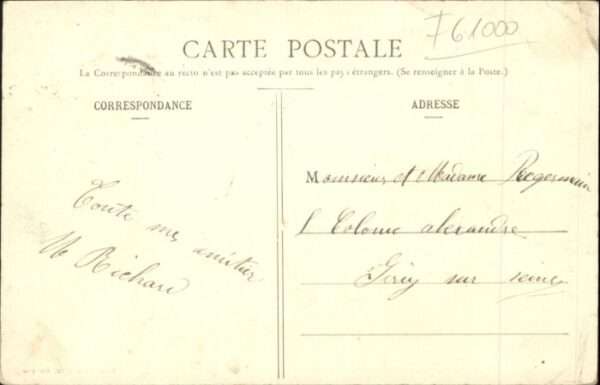 F61000
CARTE POSTALE
La Correspondance au recto n'est pas acceptée par tous les pays étrangers. (Se renseigner à la Poste.)
CORRESPONDANCE
ADRESSE
Toute mes amitier
M Richard
Monsieur et Madame Rogermain
Colonie alexandre
sur seine